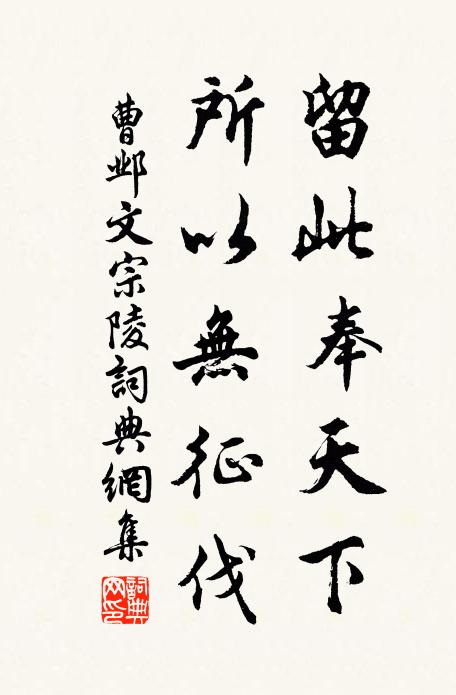 留此奉天下
所以無征伐
曹邺文宗陵詞典網集
詞典網印